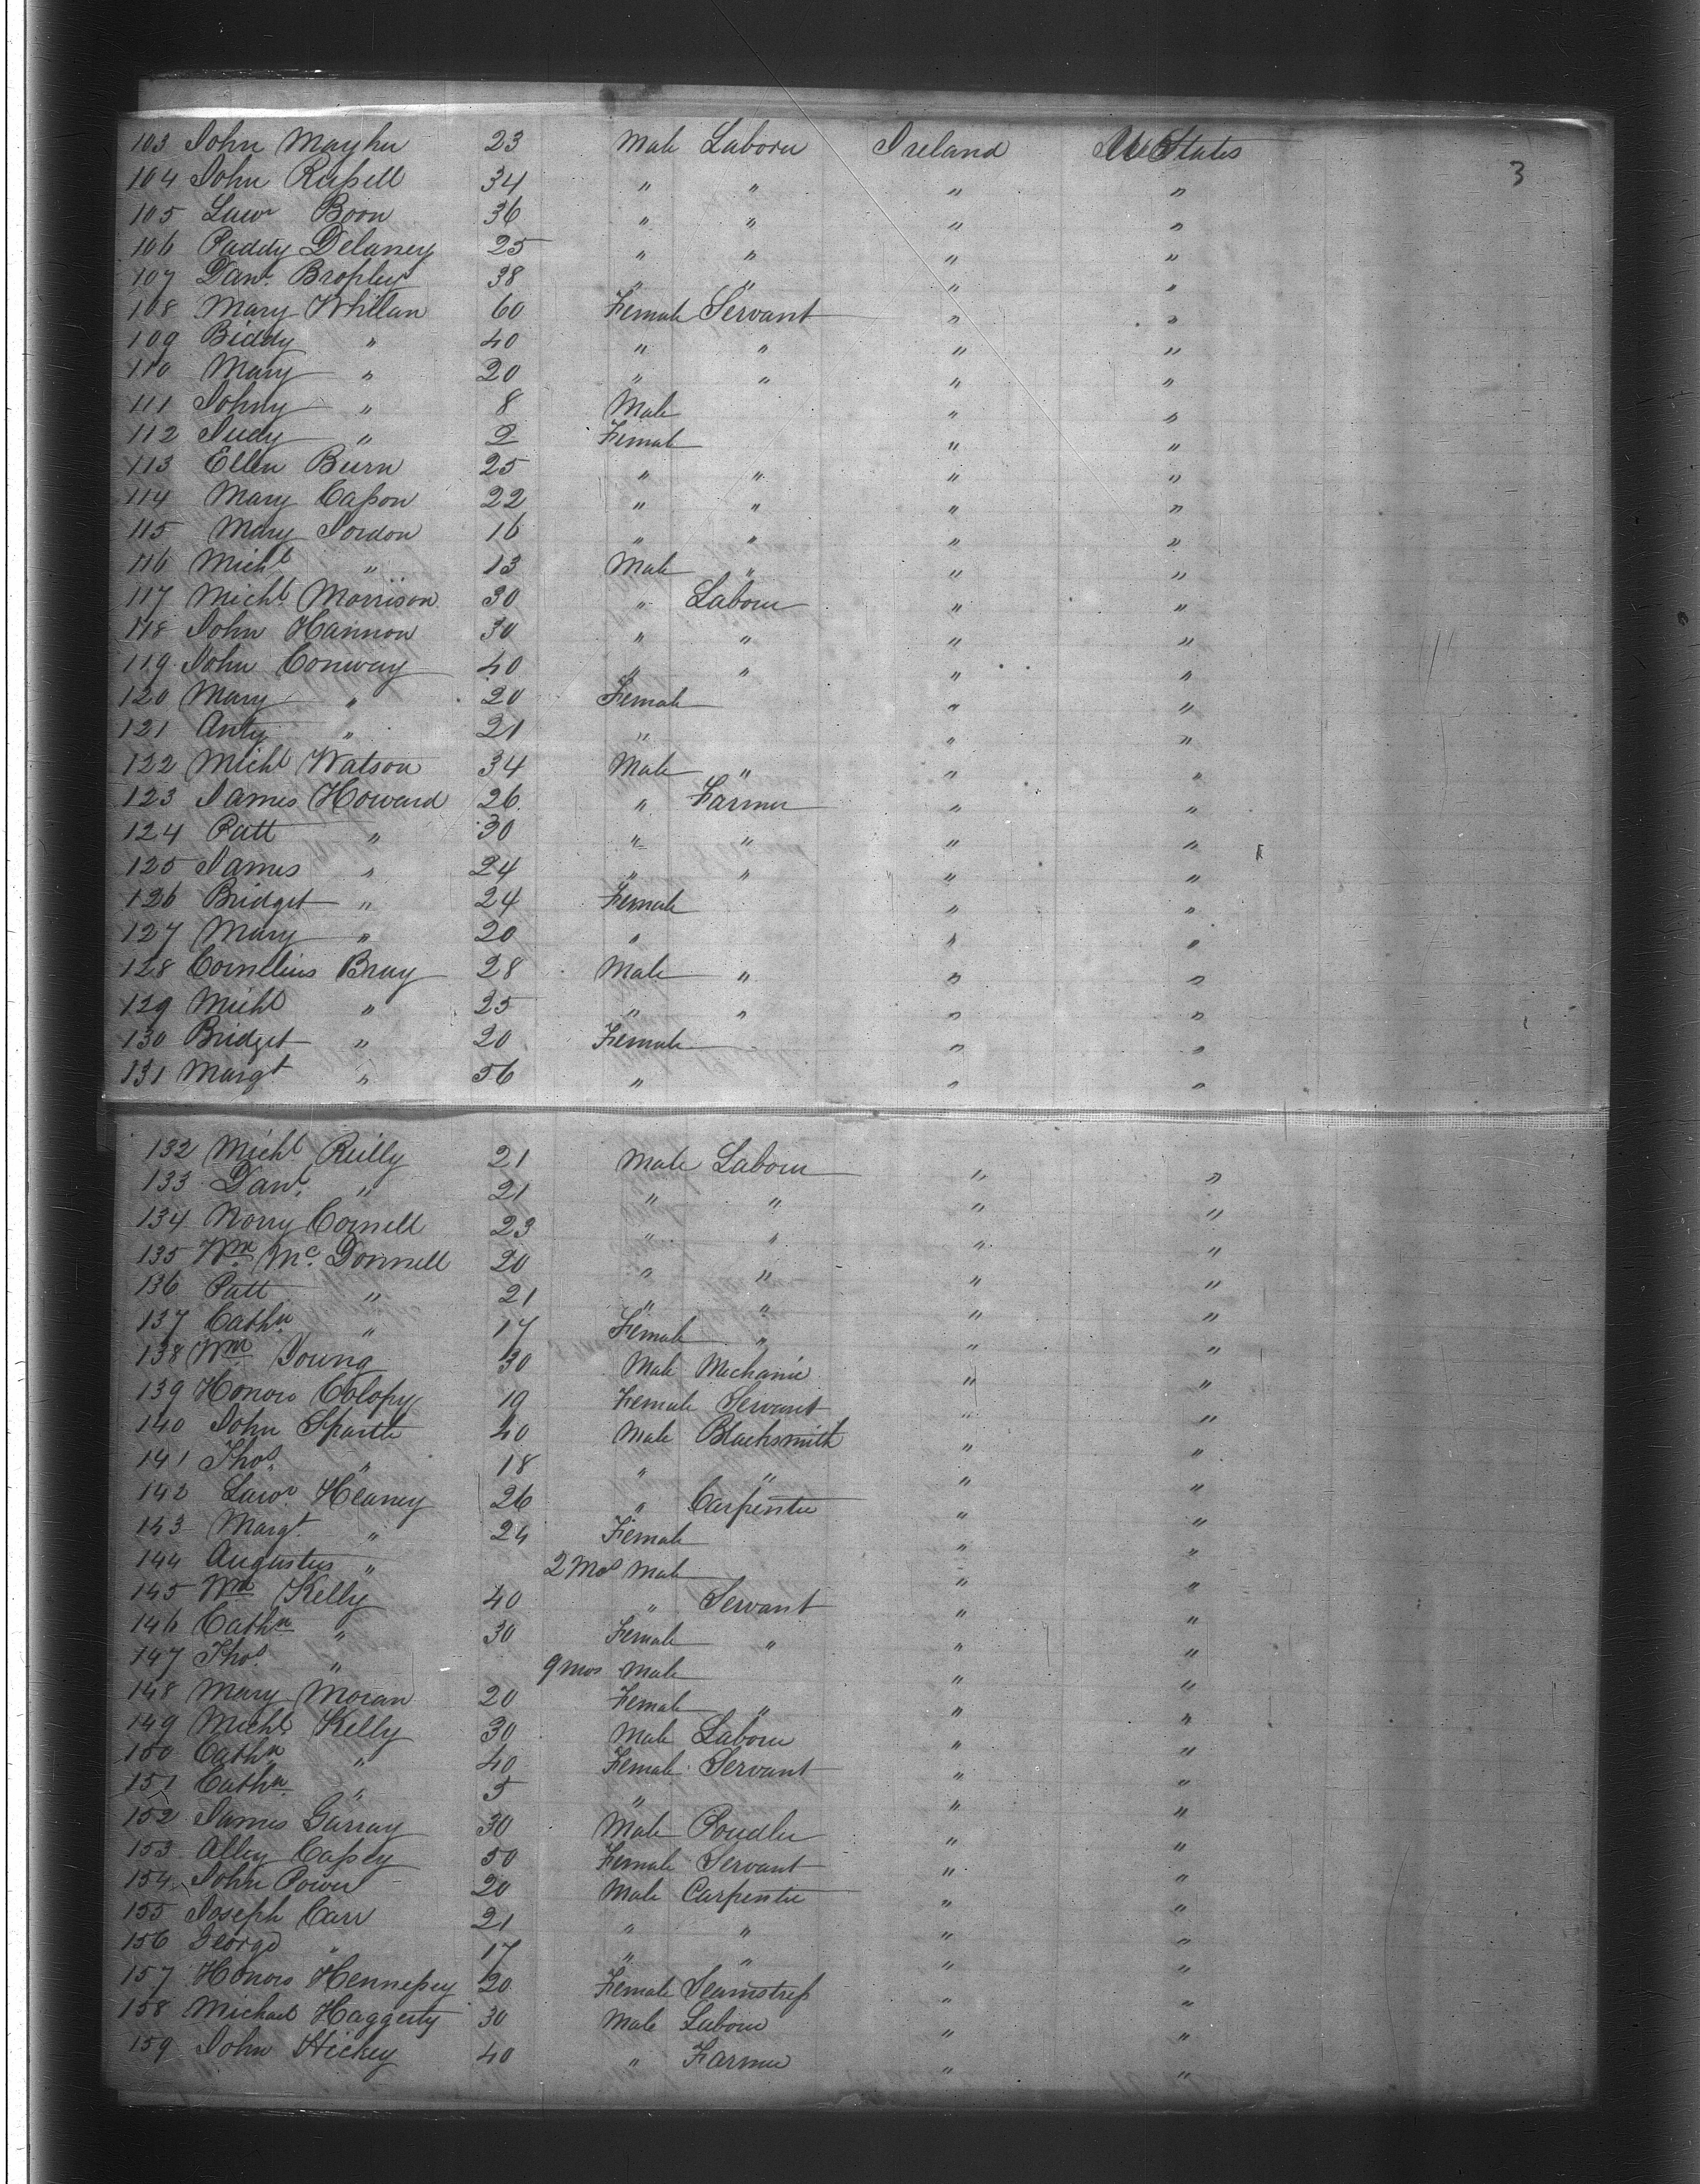 103 John Mayher 23 Male Laborer Ireland U States
3
104 John Rußell 34 " " " "
105 Lawr Boon 36 " " " "
106 Paddy Delaney 25 " " " "
107 Danl. Brophy 38 " " " "
108 Mary Whillan 60 Female Servant " "
109 Biddy " 40 " " " "
110 Mary " 20 " " " "
111 Johny " 8 Male " "
112 Judy " 2 Female " "
113 Ellen Burn 25 " " " "
114 Mary Caßon 22 " " " "
115 Mary Jordon 16 " " " "
116 Michl " 13 Male " " "
117 Michl. Morrison 30 " Laborer " "
118 John Hannon 30 " " " "
119 John Conway 40 " " " "
120 Mary " 20 Female " "
121 Anty " 21 " " "
122 Michl Watson 34 Male " " "
123 James Howard 26 " Farmer " "
124 Patt " 30 " " " "
125 James " 24 " " " "
126 Bridget " 24 Female " "
127 Mary " 20 " " "
128 Cornelius Bray 28 Male " " "
129 Michl " 25 " " " "
130 Bridget " 20 Female " "
131 Margt " 56 " " "
132 Michl Reilly 21 Male Laborer " "
133 Danl. " 21 " " " "
134 Norry Cornell 23 " " " "
135 Wm. Mc. Donnell 20 " " " "
136 Patt " 21 " " " "
137 Cathn. " 17 Female " " "
138 Wm Young 30 Male Mechanic " "
139 Honora Colopy 19 Female Servant " "
140 John 40 Male Blacksmith " "
141 Thos. " 18 " " " "
142 Lawr. Heaney 26 " Carpenter " "
143 Margt. " 24 Female " "
144 Augustus " 2 Mos Male " "
145 Wm Kelly 40 " Servant " "
146 Cathn " 30 Female " " "
147 Thos. " 9 mos Male " "
148 Mary Moran 20 Female " " "
149 Michl. Kelly 30 Male Laborer " "
150 Cathn " 40 Female Servant " "
151 Cathn. " 5 " " "
152 James Garray 30 Male " "
153 Alley Caßey 50 Female Servant " "
154 John Power 20 Male Carpenter " "
155 Joseph Carr 21 " " " "
156 George " 17 " " " "
157 Honora Henneßey 20 Female Seamstreß " "
158 Michael Haggerty 30 Male Laborer " "
159 John Hickey 40 " Farmer " "